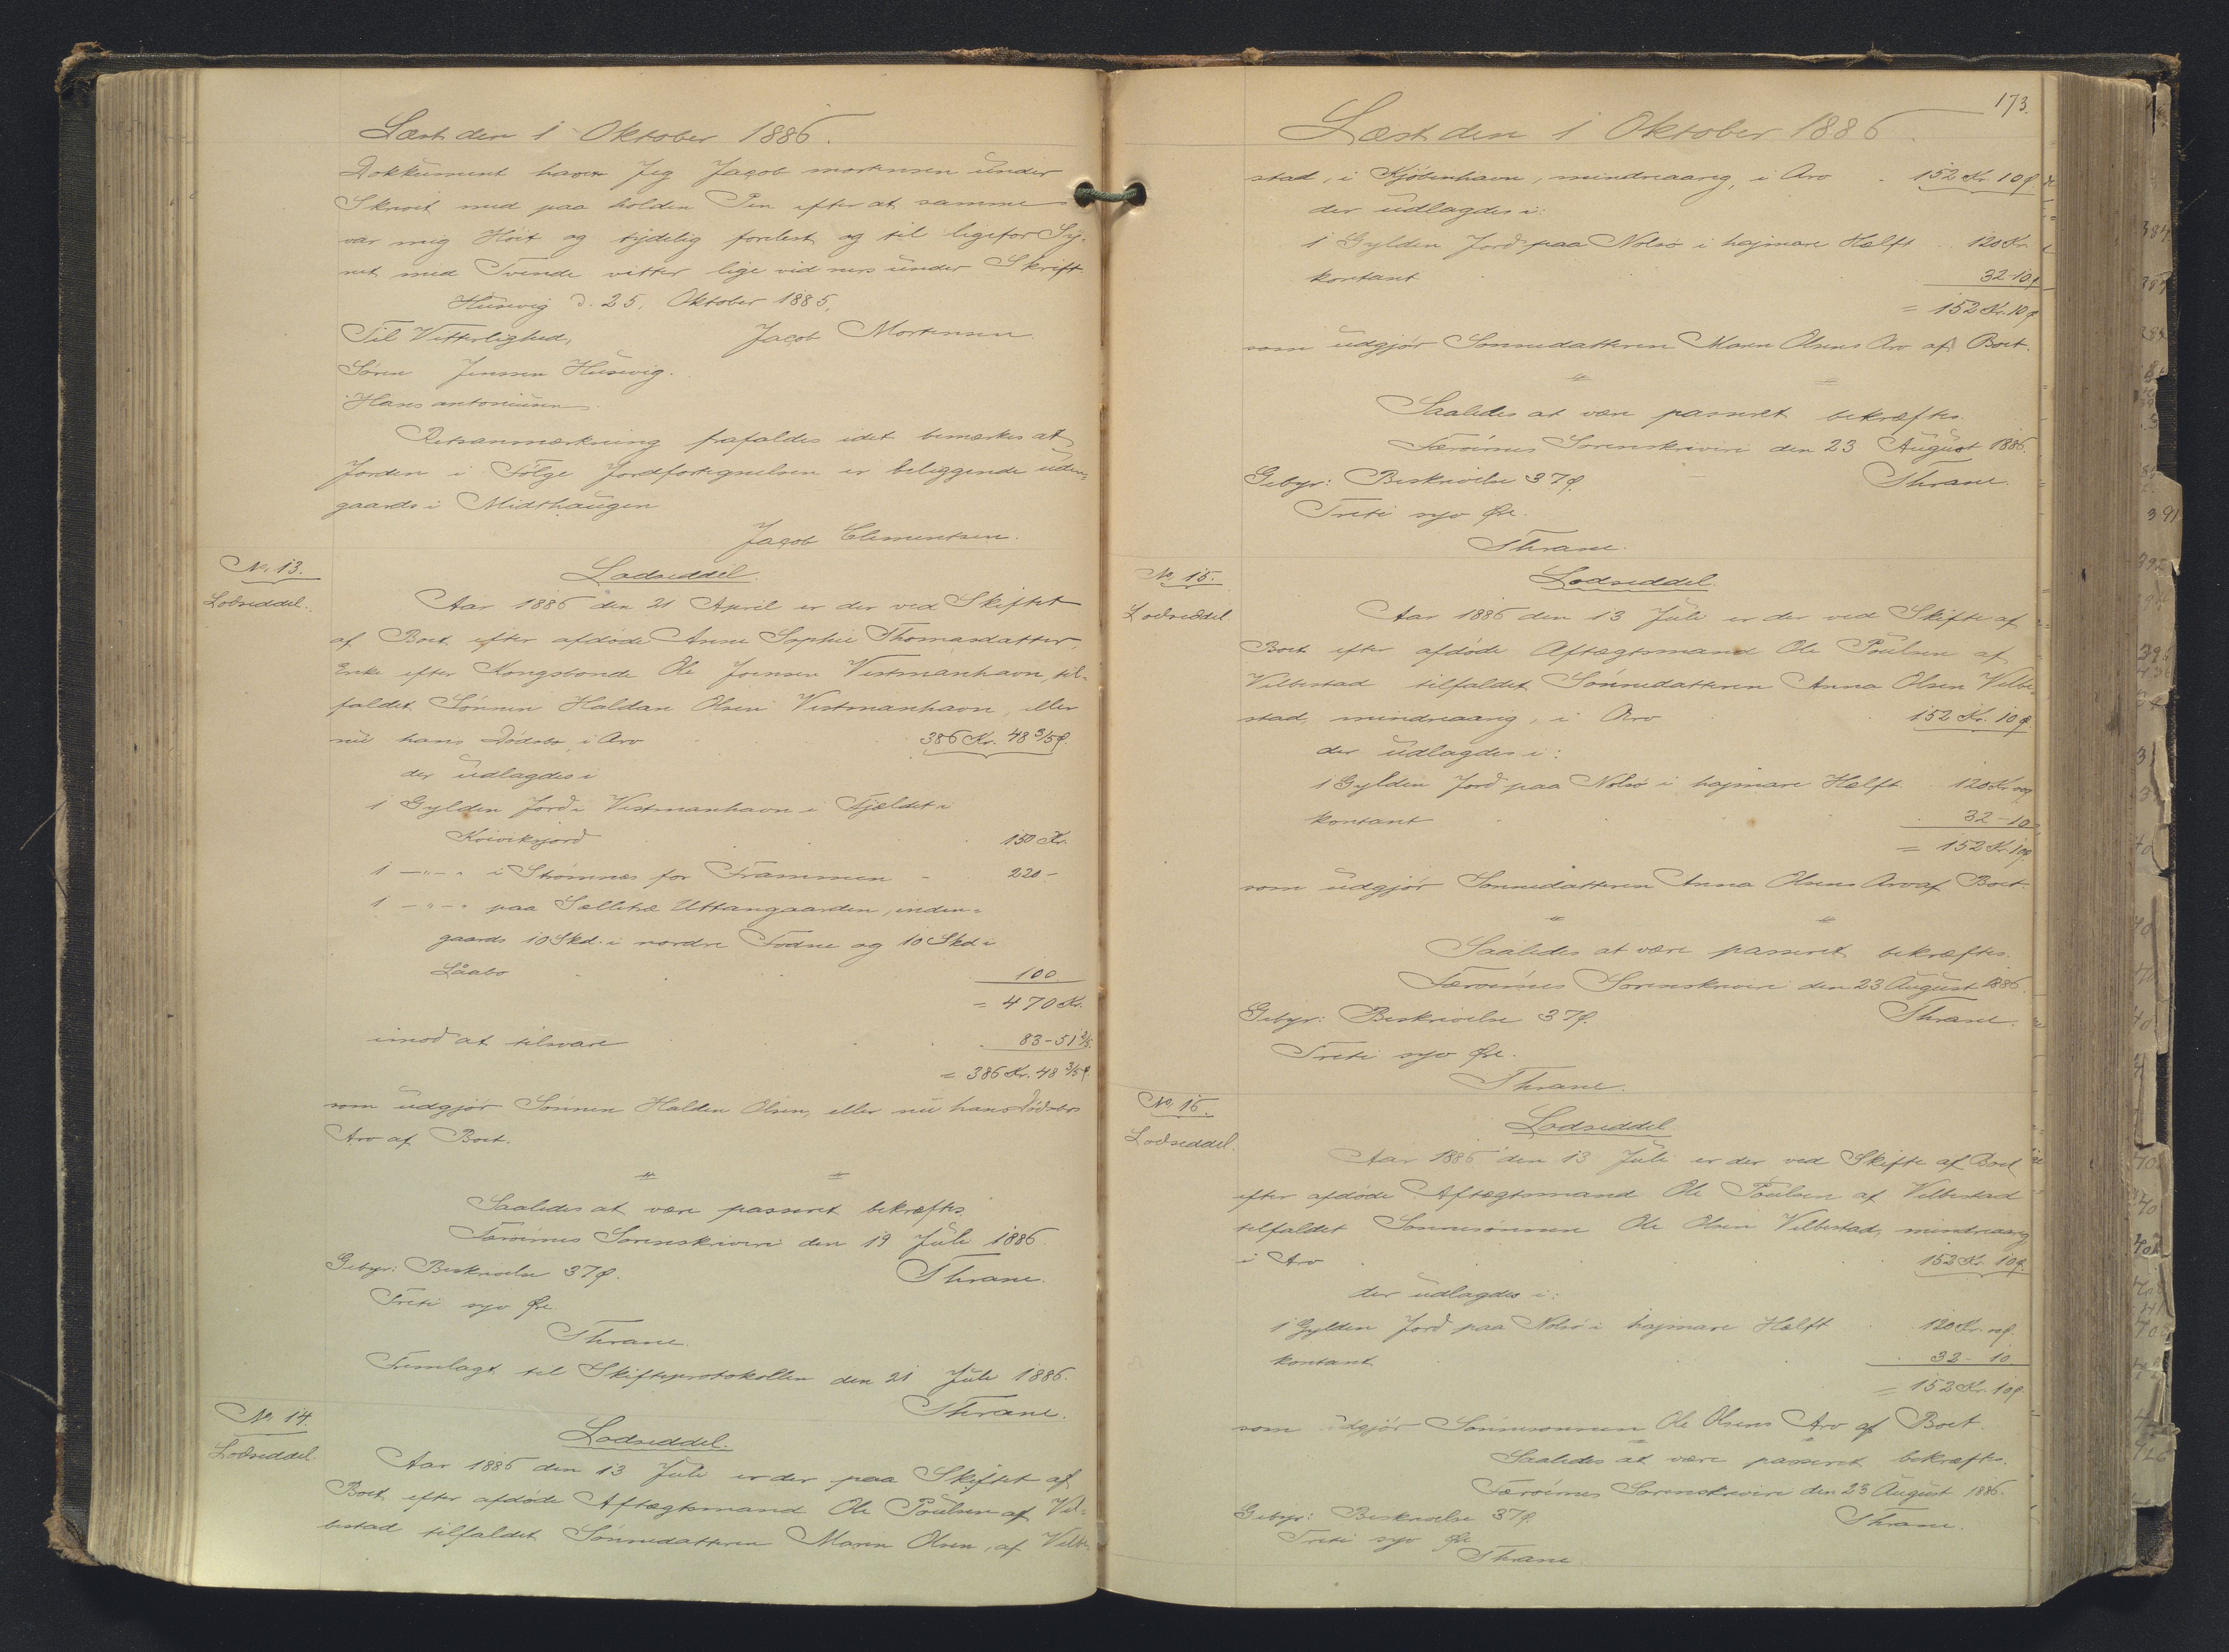 Læst den 1 Oktober 1886.
Dokkument haver Jeg Jacob mortensen under
Skrvet med paa holden Pen efter at samme
var mig Höit og tydelig forelest og til ligefor Sy-
net med Tvende vitter lige vid ners under Skrift
Husevig d. 25. Oktober 1885,
Til Vitterlighed, Jacob Mortensen.
Sören Jensen Husevig.
Hans antoniusen
Retsanmærkning frafaldes idet bemærkes at
Jorden i Følge Jordfortegnelsen er beliggende uden-
gaards i Midthaugen
Jacob Clementsen.
No. 13. Lodseddel.
Lodseddel. Aar 1886 den 21 April er der ved Skiftet
af Boet efter afdøde Anne Sophie Thomasdatter,
Enke efter Kongsbonde Ole Joensen Vestmanhavn, til-
faldet Sønnen Haldan Olsen Vestmanhavn, eller
nu hans Dødsbo, i Arv 386 Kr. 48 3/5 Ø.
der udlagdes i
1 Gylden Jord i Vestmanhavn i Fjældet i
Kvivikvjord 150 Kr.
1 —"—" i Strømnæs for Frammen 220 -
1 —"—" paa Sælletræ Uttangaarden, inden-
gaards 10 Skd. i nordre Todne og 10 Skd i
Låabo 100
= 470 Kr.
imod at tilsvare 83-51 2/5.
= 386 Kr. 48 3/5 Ø
som udgjør Sønnen Halden Olsen, eller nu hans Dødsbos
Arv af Boet.
Saaledes at være passeret bekræftes.
Færøernes Sorenskriveri den 19 Juli 1886.
Gebyr: Beskrivelse 37 Ø. Thrane.
Treti syv Øre.
Thrane.
Fremlagt til Skifteprotokollen den 21 Juli 1886.
Thrane.
No. 14. Lodseddel.
Lodseddel. Aar 1886 den 13 Juli er der paa Skiftet af
Boet efter afdøde Aftægtsmand Ole Poulsen af Vel-
bestad tilfaldet Sønnedatteren Maren Olsen, af Velbe-
173.
Læst den 1 Oktober 1886
stad, i Kjöbenhavn, mindreaarig, i Arv 152 Kr. 10 Ø.
der udlagdes i:
1 Gylden Jord paa Nolsø i hajmare Hælft 120 Kr.
kontant 32-10 Ø
= 152 Kr. 10 Ø
som udgjør Sønnedatteren Maren Olsens Arv af Boet.
Saaledes at være passeret bekræftes.
Færøernes Sorenskriveri den 23 August 1886.
Gebyr: Beskrivelse 37 Ø. Thrane.
Treti syv Øre.
Thrane.
No. 15. Lodseddel.
Lodseddel Aar 1886 den 13 Juli er der ved Skifte af
Boet efter afdøde Aftægtsmand Ole Poulsen af
Velbestad tilfaldet Sønnedatteren Anna Olsen Velbe-
stad, mindreaarig, i Arv 152 Kr. 10 Ø.
der udlagdes i:
1 Gylden Jord paa Nolsø i hajmare Hælft 120 Kr.
kontant 32-10
= 152 Kr. 10 Ø
som udgjør Sønnedatteren Anna Olsens Arv af Boet.
Saaledes at være passeret bekræftes.
Færøernes Sorenskriveri den 23 August 1886.
Gebyr: Beskrivelse 37 Ø. Thrane.
Treti syv Øre.
Thrane.
No. 15. Lodseddel
Lodseddel. Aar 1886 den 13 Juli er der ved Skifte af Boet
efter afdøde Aftægtsmand Ole Poulsen af Velbestad
tilfaldet Sønnesønnen Ole Olsen Velbestad, mindreaarig,
i Arv 152 Kr. 10 Ø.
der udlagdes i:
1 Gylden Jord paa Nolsø i hajmare Hælft 120 Kr.
kontant 32-10
= 152 Kr. 10 Ø
som udgjør Sønnesønnen Ole Olsens Arv af Boet.
Saaledes at være passeret bekræftes.
Færøernes Sorenskriveri den 23 August 1886.
Gebyr: Beskrivelse 37 Ø. Thrane.
Treti syv Øre
Thrane